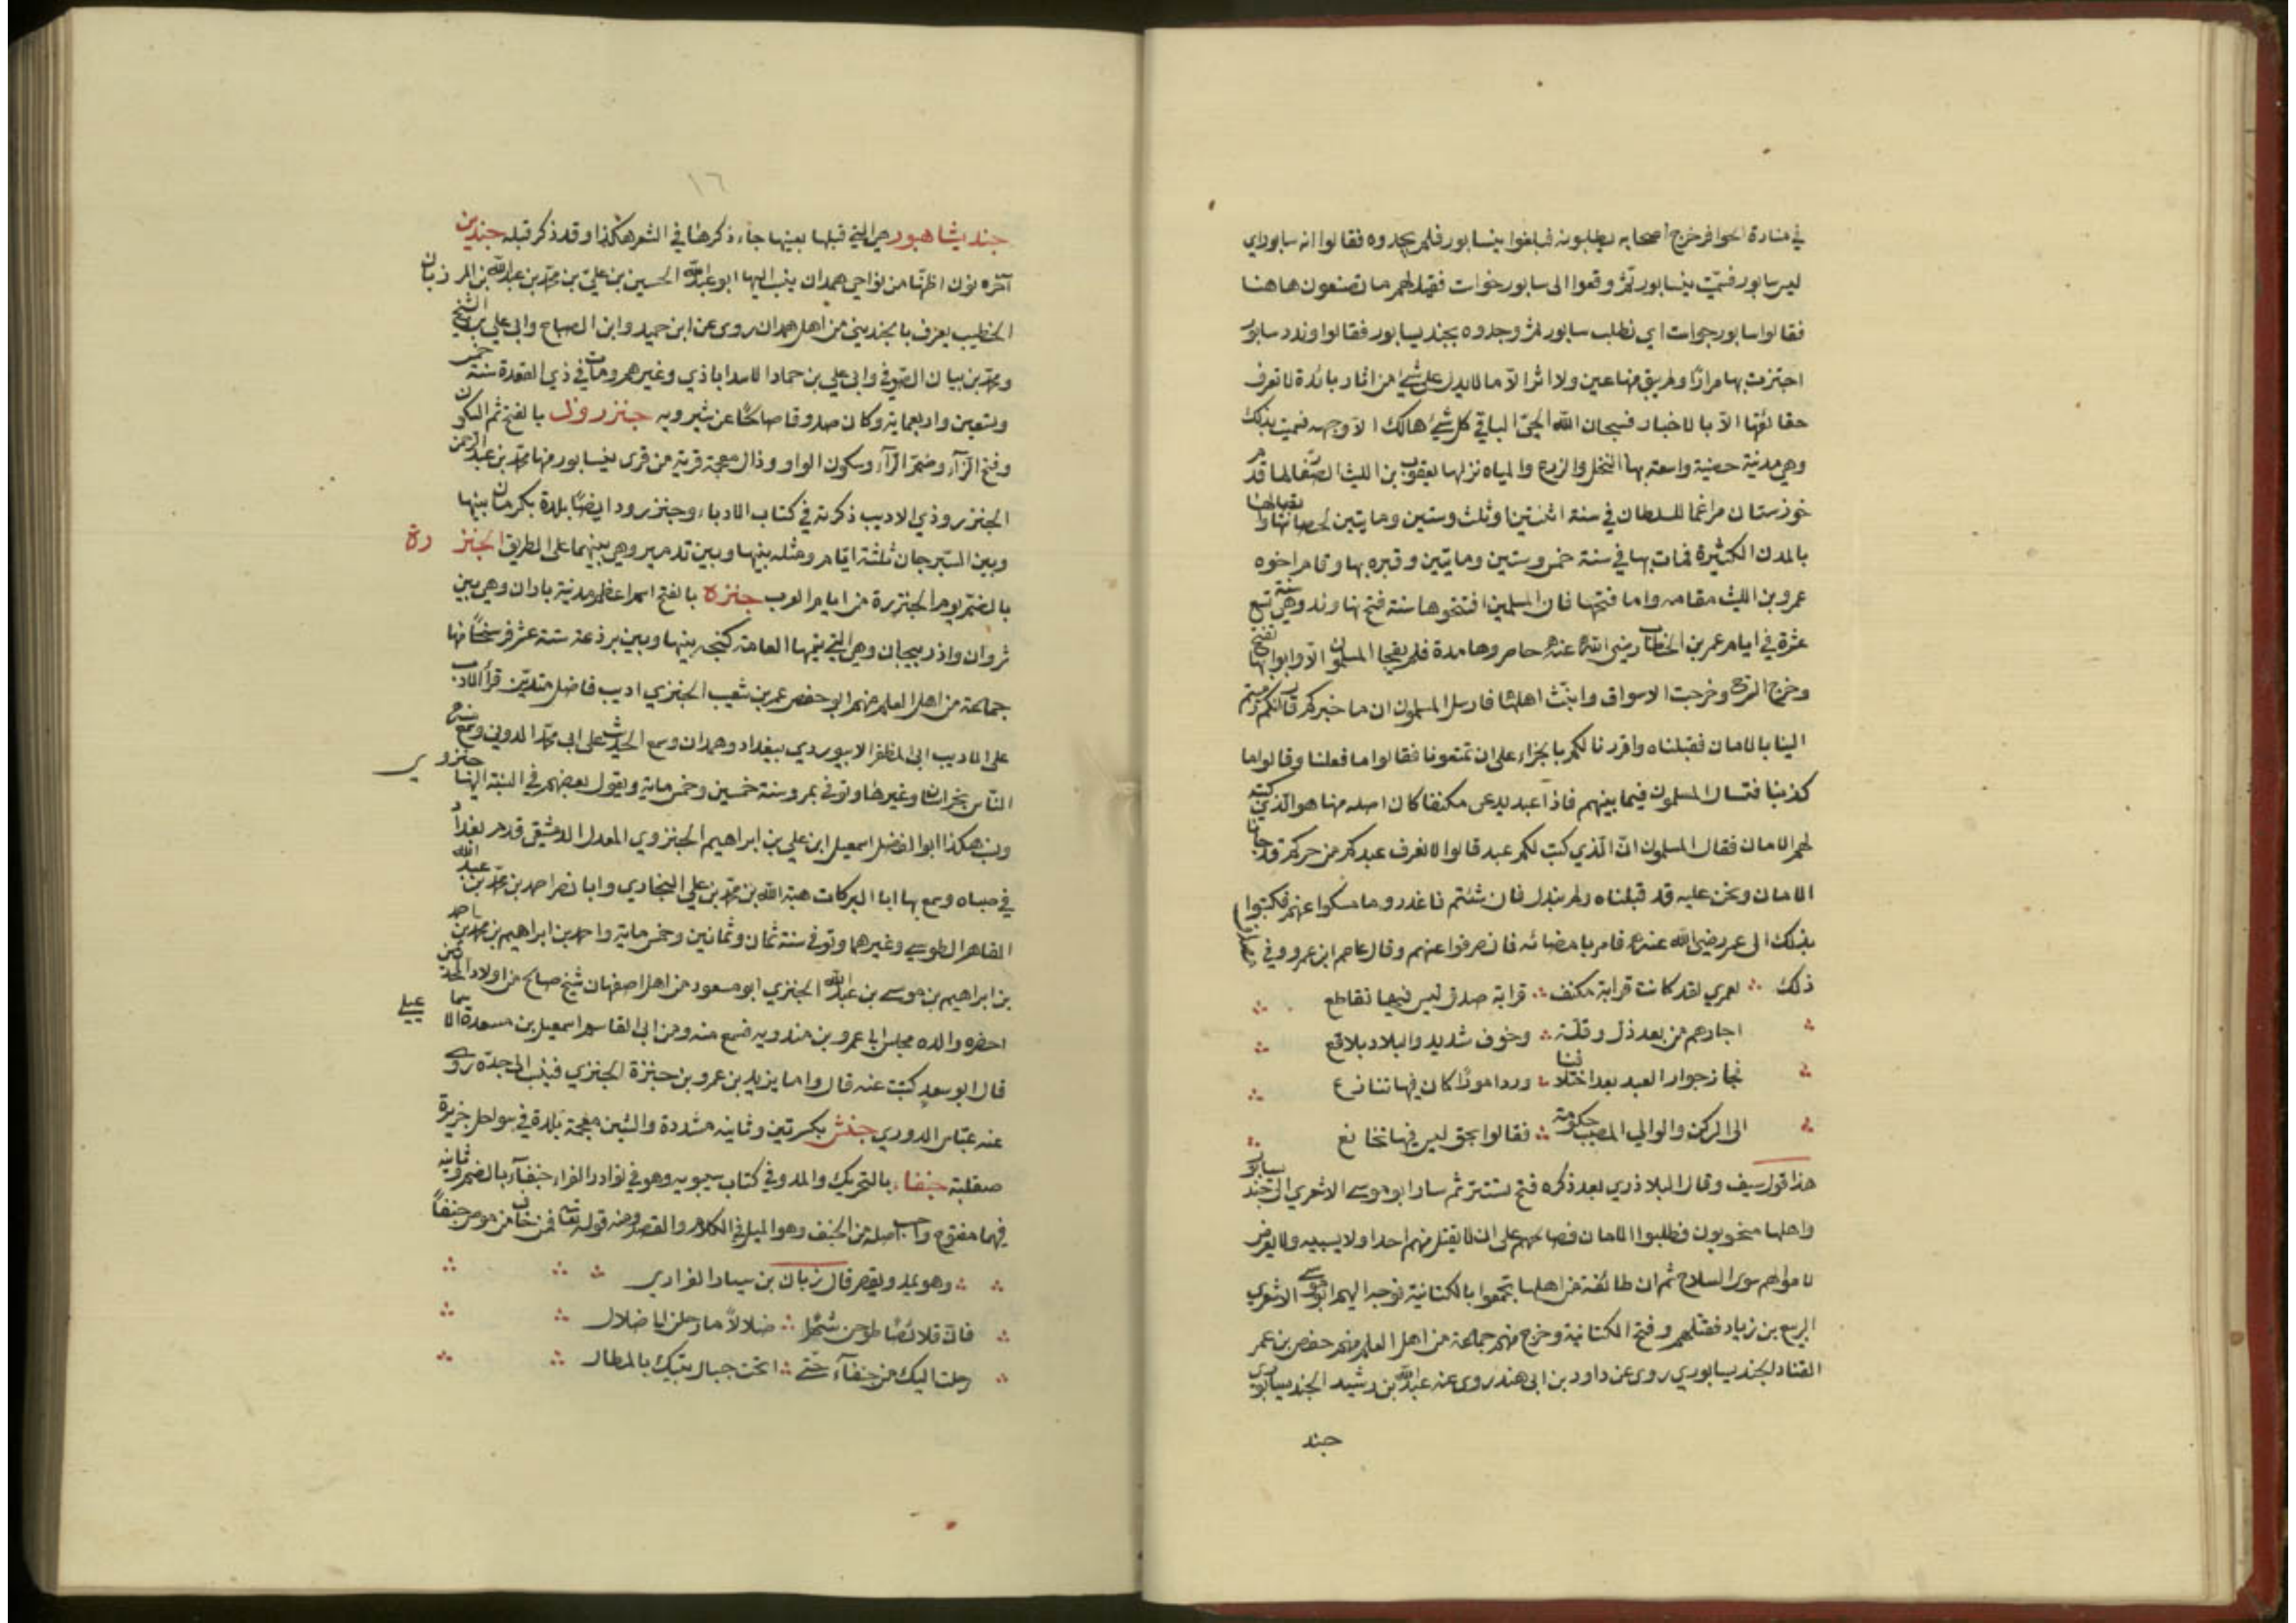 في منارة الحوافر خرج اصحابه يطلبونه فبلغوا نيسابور فلم يجدوه فقالوا انه سابوراي
ليس سابور فسميت نيسابور ثم وقعوا الى سابور خواست فقيل لهم ما تصنعون هاهنا
فقالوا سابور جواست اي نطلب سابور ثم وجدوه بجنديسابور فقالوا وندد سابور
اجتزت بها مرارا ولم يبق منها عين ولا اثر الا ما لا يدل على شئ من اثار بائدة لا تعرف
حقائقها الا بالاخبار فسبحان الله الحي الباقي كل شئ هالك الا وجهه فسميت بذلك
وهي مدينة حصينة واسعة بها النخل والزرع والمياه نزلها يعقوب بن الليث الصفار لما قدم
خوزستان مراغما للسلطان في سنة اثنتين او ثلث وستين ومايتين لحصانتها واتصالها
بالمدن الكثيرة فمات بها في سنة خمس وستين ومايتين وقبره بها وقام اخوه
عمرو بن الليث مقامه واما فتحها فان المسلمين افتتحوها سنة فتح نهاوند وهي سنة تسع
عشرة في ايام عمر بن الخطاب رضي الله عنه حاصروها مدة فلم يفجا المسلمون الا وابوابها تفتح
وخرج السرح وخرجت الاسواق وانبث اهلها فارسل المسلمون ان ما خبركم قالوا انكم رميتم
الينا بالامان فقبلناه واقررنا لكم بالجزاء على ان تمنعونا فقالوا ما فعلنا وقالوا ما
كذبنا فتسال المسلمون فيما بينهم فاذا عبد يدعى مكنفا كان اصله منها هو الذي كتب
لهم الامان فقال المسلمون ان الذي كتب لكم عبد قالوا لا نعرف عبدكم من حركم قد جانا
الامان ونحن عليه قد قبلناه ولم نبدل فان شئتم فاغدروا فامسكوا عنهم وكتبوا
بذلك الى عمر رضي الله عنه فامر بامضائه فانصرفوا عنهم وقال عاصم ابن عمرو في
ذلك ∴ لعمري لقد كانت قرابة مكنف ∴ قرابة صدق ليس فيها تقاطع ∴
∴ اجارهم من بعد ذل وقلة ∴ وخوف شديد والبلاد بلاقع ∴
∴ نجاز جوار العبد بعد اختلافنا ∴ ورد امورا كان فيها تنازع ∴
∴ الى الركن والوالي المصيب حكومة ∴ فقالوا بحق ليس فيها تخالع ∴
هذا قول سيف وقال البلاذري بعد ذكره فتح تستر ثم سار ابو موسى الاشعري الى جنديسابور
واهلها منخوبون فطلبوا الامان فصالحهم على ان لا يقتل منهم احدا ولا يسبيه ولا يعرض
لاموالهم سوى السلاح ثم ان طائفة من اهلها تجمعوا بالكتانية فوجه اليهم ابو موسى الاشعري
الربيع بن زياد فقتلهم وفتح الكتانية وخرج منهم جماعة من اهل العلم منهم حفص بن عمر
القناد لجنديسابوري روى عن داود بن ابي هند روى عنه عبد الله بن رشيد الجنديسابوري
جند
١٦
جنديشاهبور هي التي قبلها بعينها جاء ذكرها في الشعر هكذا وقد ذكر قبله جندين
آخره نون اظنها من نواحي همدان ينسب اليها ابو عبد الله الحسين بن علي بن محمد بن عبد الله بن المرزبان
الخطيب يعرف بالجنديني من اهل همدان روى عن ابن حميد وابن الصباح وابي علي بن الشيخ
ومحمد بن بيان الصوفي وابي علي بن حماد الاسداباذي وغيرهم ومات في ذي القعدة سنة خمس
وتسعين واربعماية وكان صدوقا صالحا عن شيرويه جنزروذ بالفتح ثم السكون
وفتح الزاء وضم الراء وسكون الواو وذال معجمة قرية من قرى نيسابور منها محمد بن عبد الرحمن
الجنزروذي الاديب ذكرته في كتاب الادباء وجنزرود ايضا بلدة بكرمان بينها
وبين السيرجان ثلثة ايام ومثله بينها وبين تدمير وهي بينهما على الطريق الجنزرة
بالضم يوم الجنزرة من ايام العرب جنزة بالفتح اسم اعظم مدينة باران وهي بين
شروان واذربيجان وهي التي تسميها العامة كنجه بينها وبين برذعة ستة عشر فرسخا منها
جماعة من اهل العلم منهم ابو حفص عمر بن شعيب الجنزي اديب فاضل متدين قرأ الادب
على الاديب ابي المظفر الابيوردي ببغداد وهمدان وسمع الحديث على ابي محمد الدوني وسمع منه
الناس بخراسان وغيرها وتوفي بمرو سنة خمسين وخمس ماية ويقول بعضهم في النسبة اليها جنزوي
ونسب هكذا ابو الفضل اسمعيل ابن علي بن ابراهيم الجنزوي المعدل الدمشقي قدم بغداد
في صباه وسمع بها ابا البركات هبة الله بن محمد بن علي البخاري وابا نصر احمد بن محمد بن عبد
القاهر الطوسي وغيرهما وتوفي سنة ثمان وثمانين وخمس ماية واحمد بن ابراهيم بن محمد بن احمد
بن ابراهيم بن موسى بن عبد الله الجنزي ابو مسعود من اهل اصفهان شيخ صالح من اولاد المحدثين
احضره والده مجلس ابا عمرو بن مندويه فسمع منه ومن ابي القاسم اسمعيل بن مسعدة الاسماعيلي
قال ابو سعد كتبت عنه قال واما يزيد بن عمرو بن جنزة الجنزي فينسب الى جده روى
عنه عباس الدوري جنش بكسرتين وثانيه مشددة والشين معجمة بلدة في سواحل جزيرة
صقلية جنفاء بالتحريك والمد وفي كتاب سيبويه وهو في نوادر الفراء جنفآء بالضم وثانيه
فيهما مفتوح واحسب اصله من الجنف وهو الميل في الكلام والقصد ومنه قوله تعالى فمن خاف من موص جنفا
∴ وهو يمد ويقصر قال زبان بن سيار الفزاري ∴
∴ فان قلائصا طوحن شهرا ∴ ضلالا ما رحلن الى ضلال ∴
∴ رحلت اليك من جنفآء حتى ∴ انخت حيال بيتك بالمطال ∴